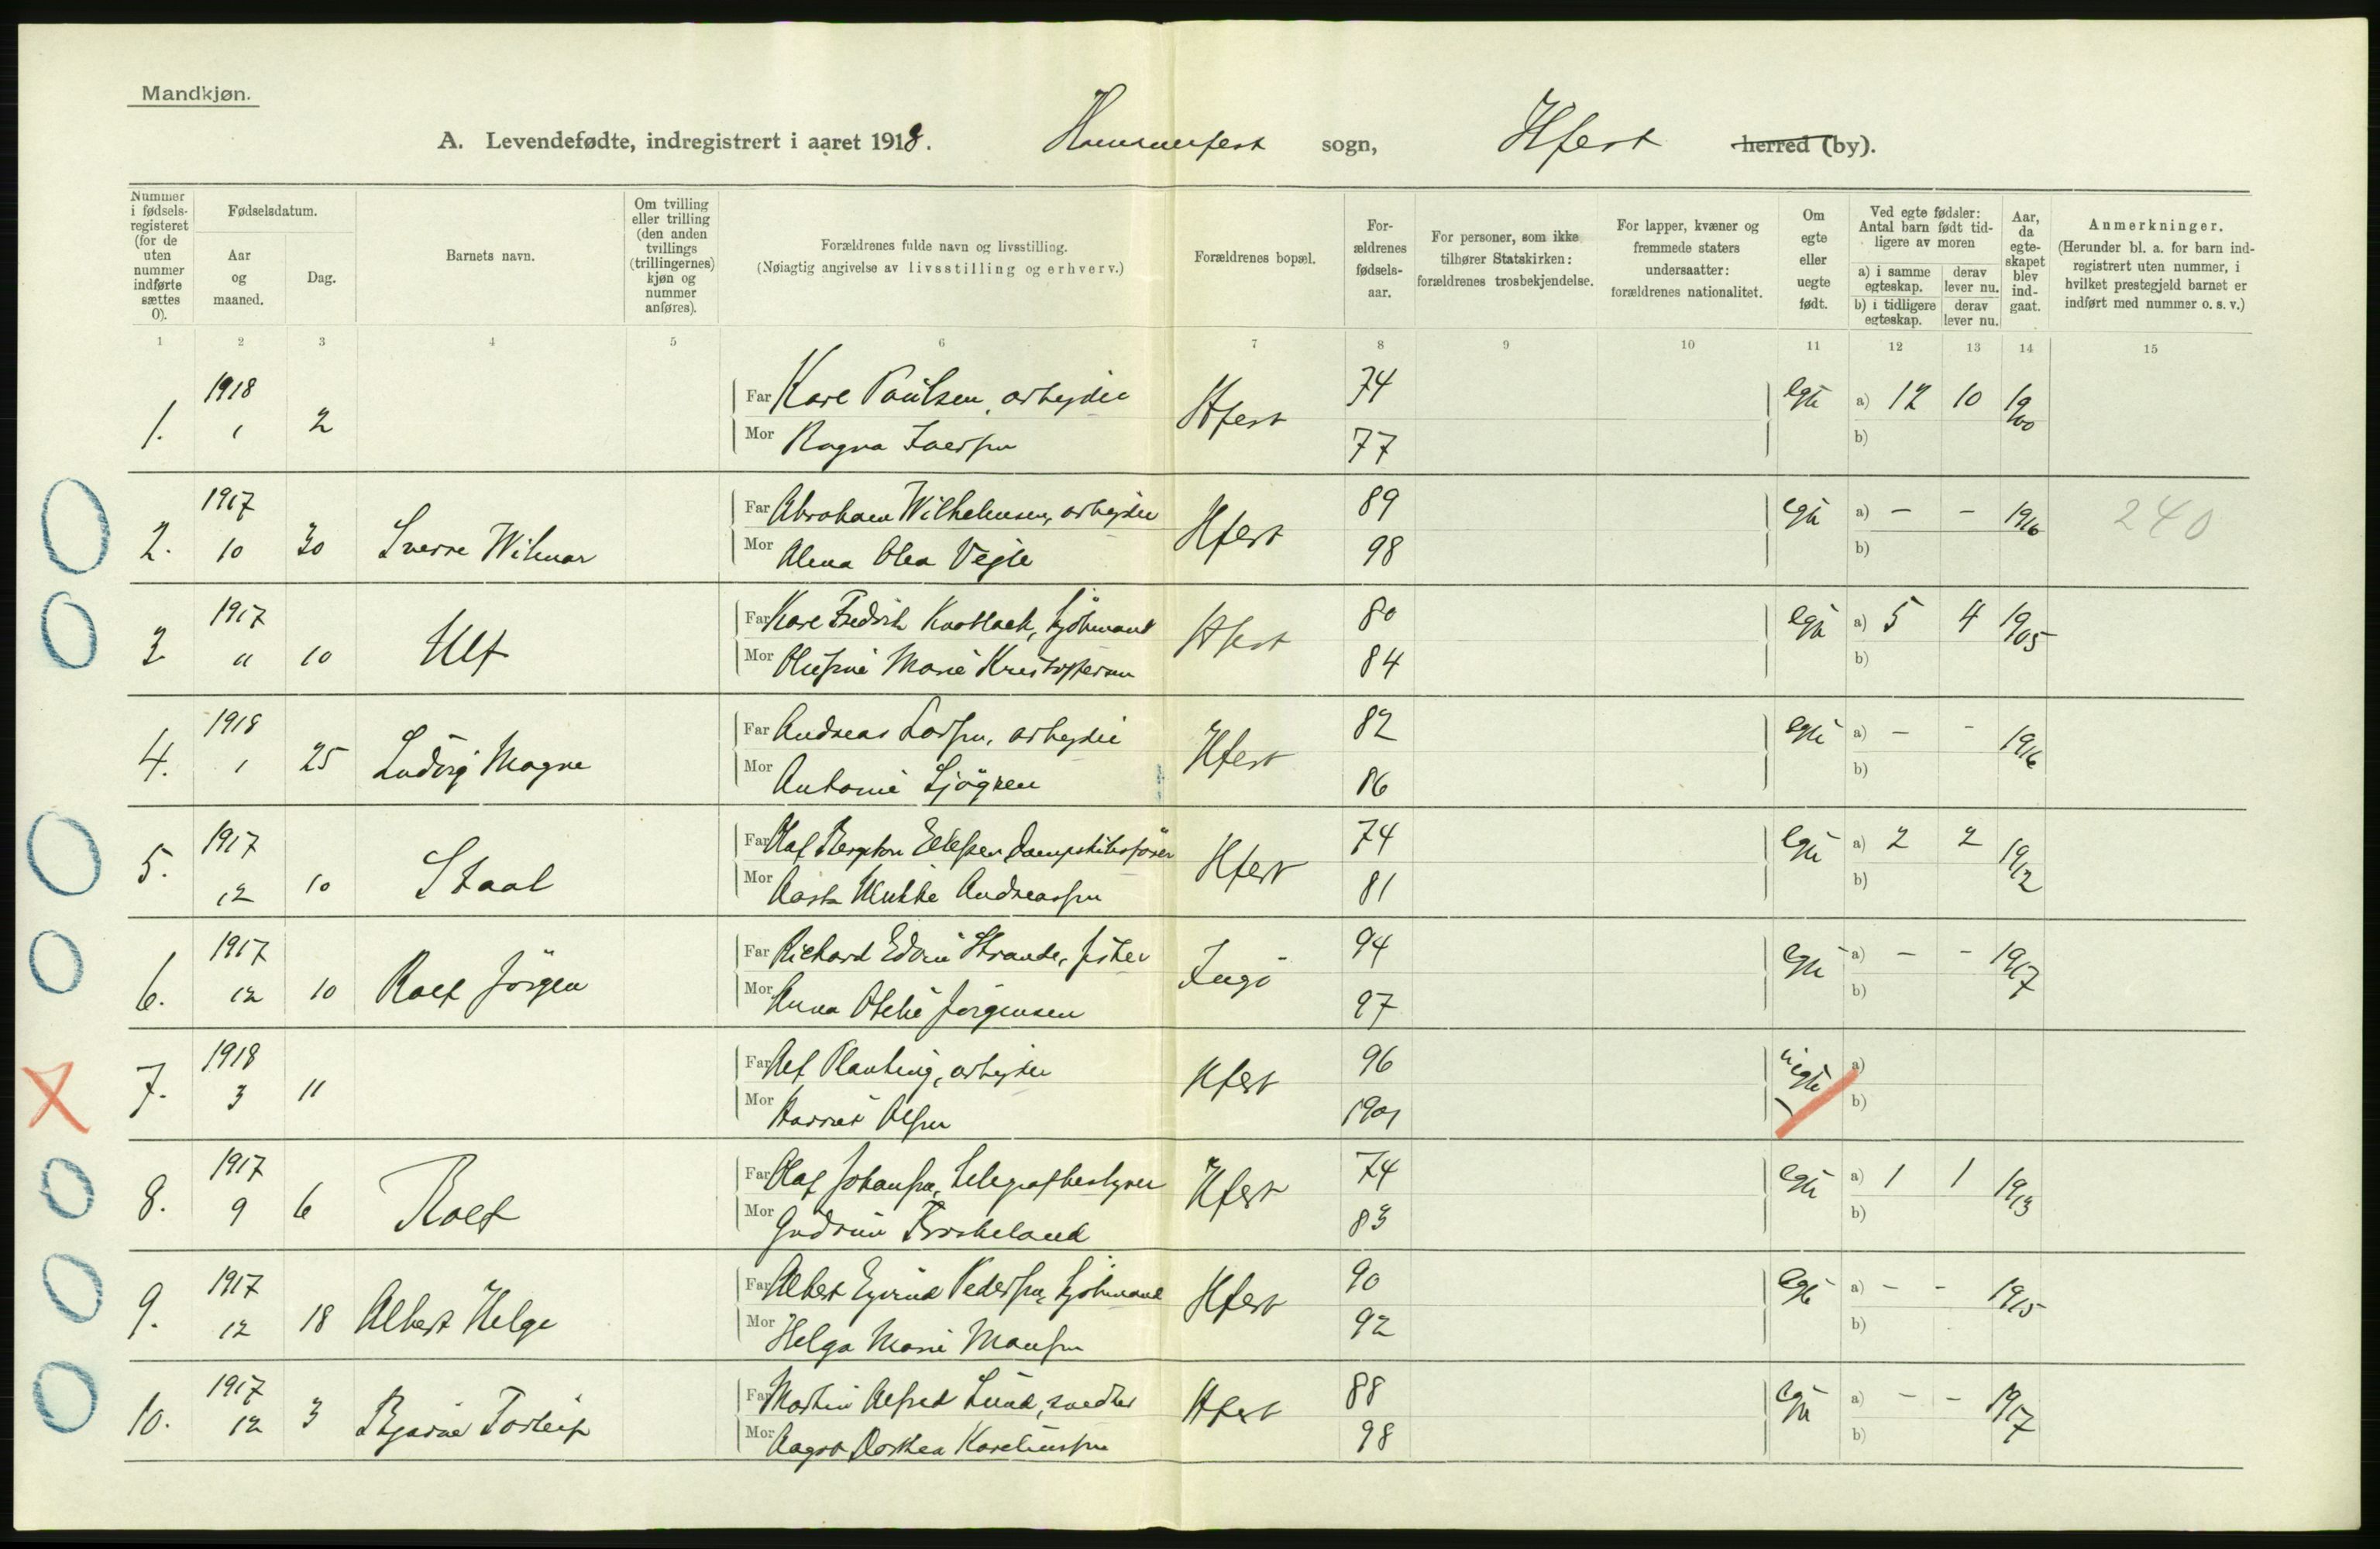 Mandkjøn.
A. Levendefødte, indregistrert i aaret 1918. Hammerfest sogn, Hfest herred (by).
Nummer i fødselsregisteret (for de uten nummer indførte sættes 0).
Fødselsdatum.
Aar og maaned.
Dag.
Barnets navn.
Om tvilling eller trilling (den anden tvillings (trillingernes) kjøn og nummer anføres).
Forældrenes fulde navn og livsstilling.
(Nøiagtig angivelse av livsstilling og erhverv.)
Forældrenes bopæl.
Forældrenes fødselsaar.
For personer, som ikke tilhører Statskirken: forældrenes trosbekjendelse.
For lapper, kvæner og fremmede staters undersaatter: forældrenes nationalitet.
Om egte eller uegte født.
Ved egte fødsler: Antal barn født tidligere av moren
a) i samme egteskap. derav lever nu.
b) i tidligere egteskap. derav lever nu.
Aar, da egteskapet blev indgaat.
Anmerkninger.
(Herunder bl. a. for barn indregistrert uten nummer, i hvilket prestegjeld barnet er indført med nummer o. s. v.)
1 2 3 4 5 6 7 8 9 10 11 12 13 14 15
1. 1918 1 2 Far Karl Paulsen, arbeyder Hfest 74 egte a) 12 10 1900
Mor Ragna Iversen 77 b)
2. 1917 10 30 Sverre Wilmar Far Abraham Wilhelmsen, arbeyder Hfest 89 egte a) - - 1916 240
Mor Alma Olea Vejle 98 b)
3 1917 11 10 Ulf Far Karl Fredrik Knoblack, sjömand Hfest 80 egte a) 5 4 1905
Mor Olufine Marie Kristoffersen 84 b)
4. 1918 1 25 Ludvig Magne Far Andreas Larsen, arbeyder Hfest 82 egte a) - - 1916
Mor Antonie Sjögren 86 b)
5. 1917 12 10 Staal Far Olaf Ellefsen Dampskibsförer Hfest 74 egte a) 2 2 1912
Mor Aasta Andreassen 81 b)
6. 1917 12 10 Rolf Jörgen Far Richard Edvin Strande, fisker Ingö 94 egte a) - - 1917
Mor Anna Otelie Jörgensen 97 b)
7. 1918 3 11 Far Alf Planting, arbeyder Hfest 96 uegte a)
Mor Harriet Olsen 1901 b)
8. 1917 9 6 Rolf Far Olaf Johansen, telegrafbestyrer Hfest 74 egte a) 1 1 1913
Mor Gudrun Birkeland 83 b)
9. 1917 12 18 Albert Helge Far Albert Eyvind Pedersen, sjömand Hfest 90 egte a) - - 1915
Mor Helga Marie Monsen 92 b)
10. 1917 12 3 Bjarne Torleif Far Martin Alfred Lund, snedker Hfest 88 egte a) - - 1917
Mor Aagot Dorthea Karelinssen 98 b)